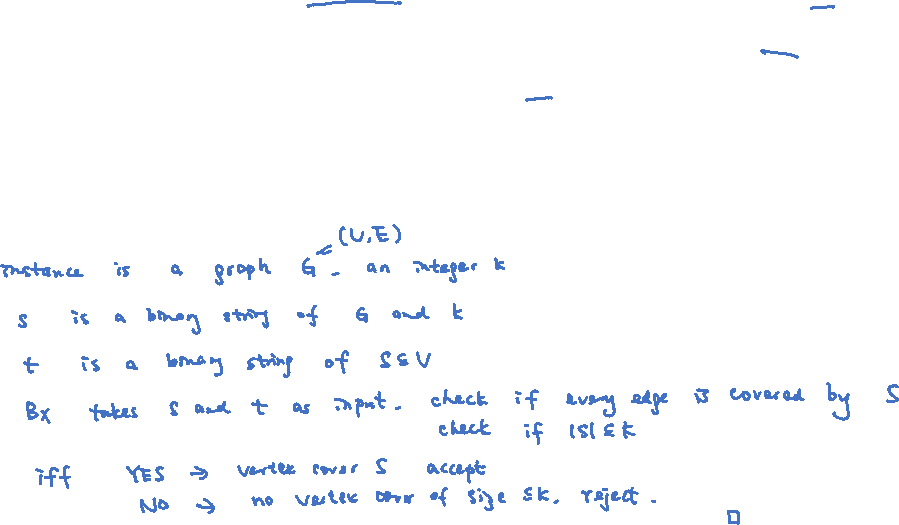 (V,E)
instance is a graph G. an integer k
s is a binary string of G and k
t is a binary string of S⊆V
Bx takes s and t as input. check if every edge is covered by S
check if |S|≤k
iff YES → vertex cover S accept
NO → no vertex cover of size ≤k. reject.